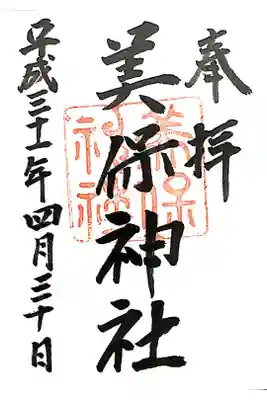 奉拝
美保神社
美保
神社
平成三十一年四月三十日